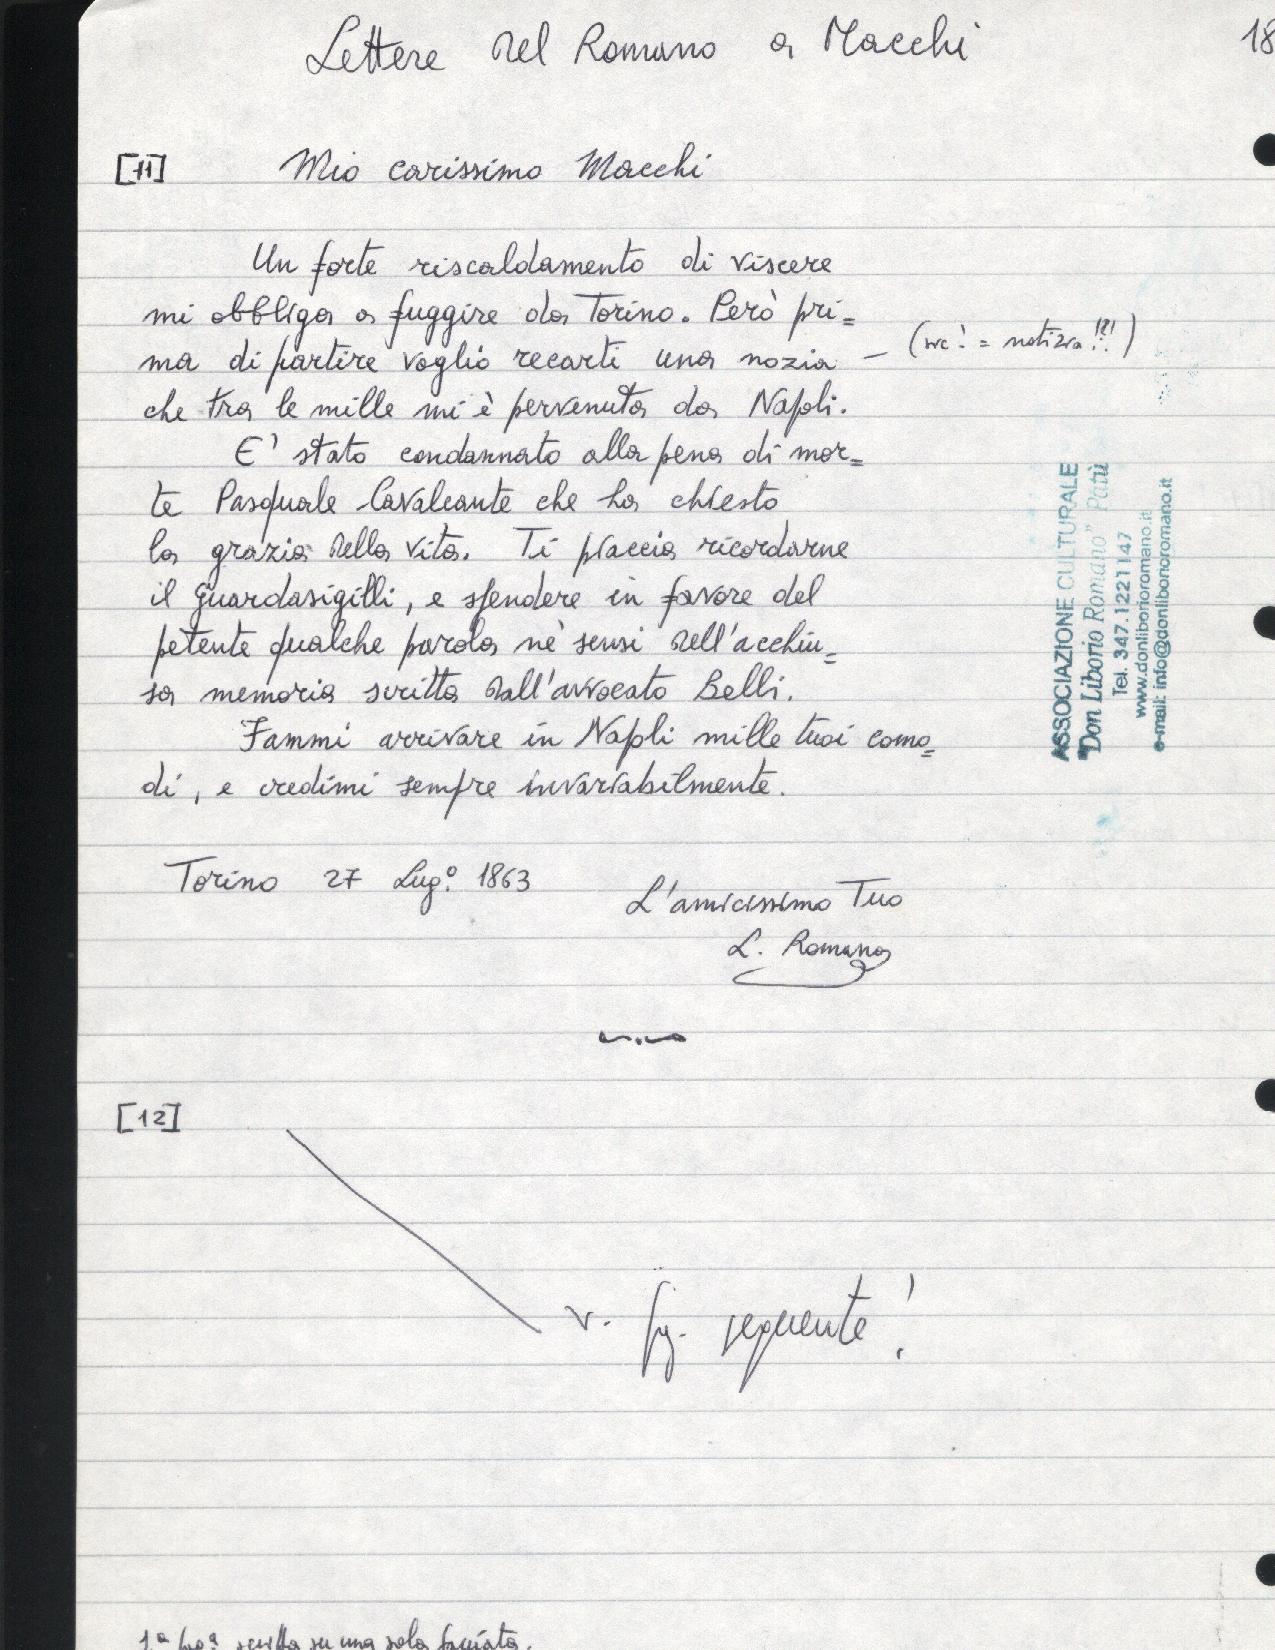 Lettere del Romano a Macchi
18
[11] Mio carissimo Macchi
Un forte riscaldamento di viscere
mi obbliga a fuggire da Torino. Però pri=
ma di partire voglio recarti una nozia — (sic! = notizia!?!)
che tra le mille mi è pervenuta da Napoli.
E' stato condannato alla pena di mor=
te Pasquale Cavalcante che ha chiesto
la grazia della vita. Ti piaccia ricordarne
il Guardasigilli, e spendere in favore del
petente qualche parola nè sensi dell'acchiu=
sa memoria scritta dall'avvocato Belli.
Fammi arrivare in Napoli mille tuoi como=
di, e credimi sempre invariabilmente.
Torino 27 Lug.º 1863
L'amicissimo Tuo
L. Romano
[12]
v. pg. seguente!
1ª pag.ª scritta su una sola facciata.
ASSOCIAZIONE CULTURALE
"Don Liborio Romano" Patù
Tel. 347.1221147
www.donliborioromano.it
e-mail: info@donliborioromano.it